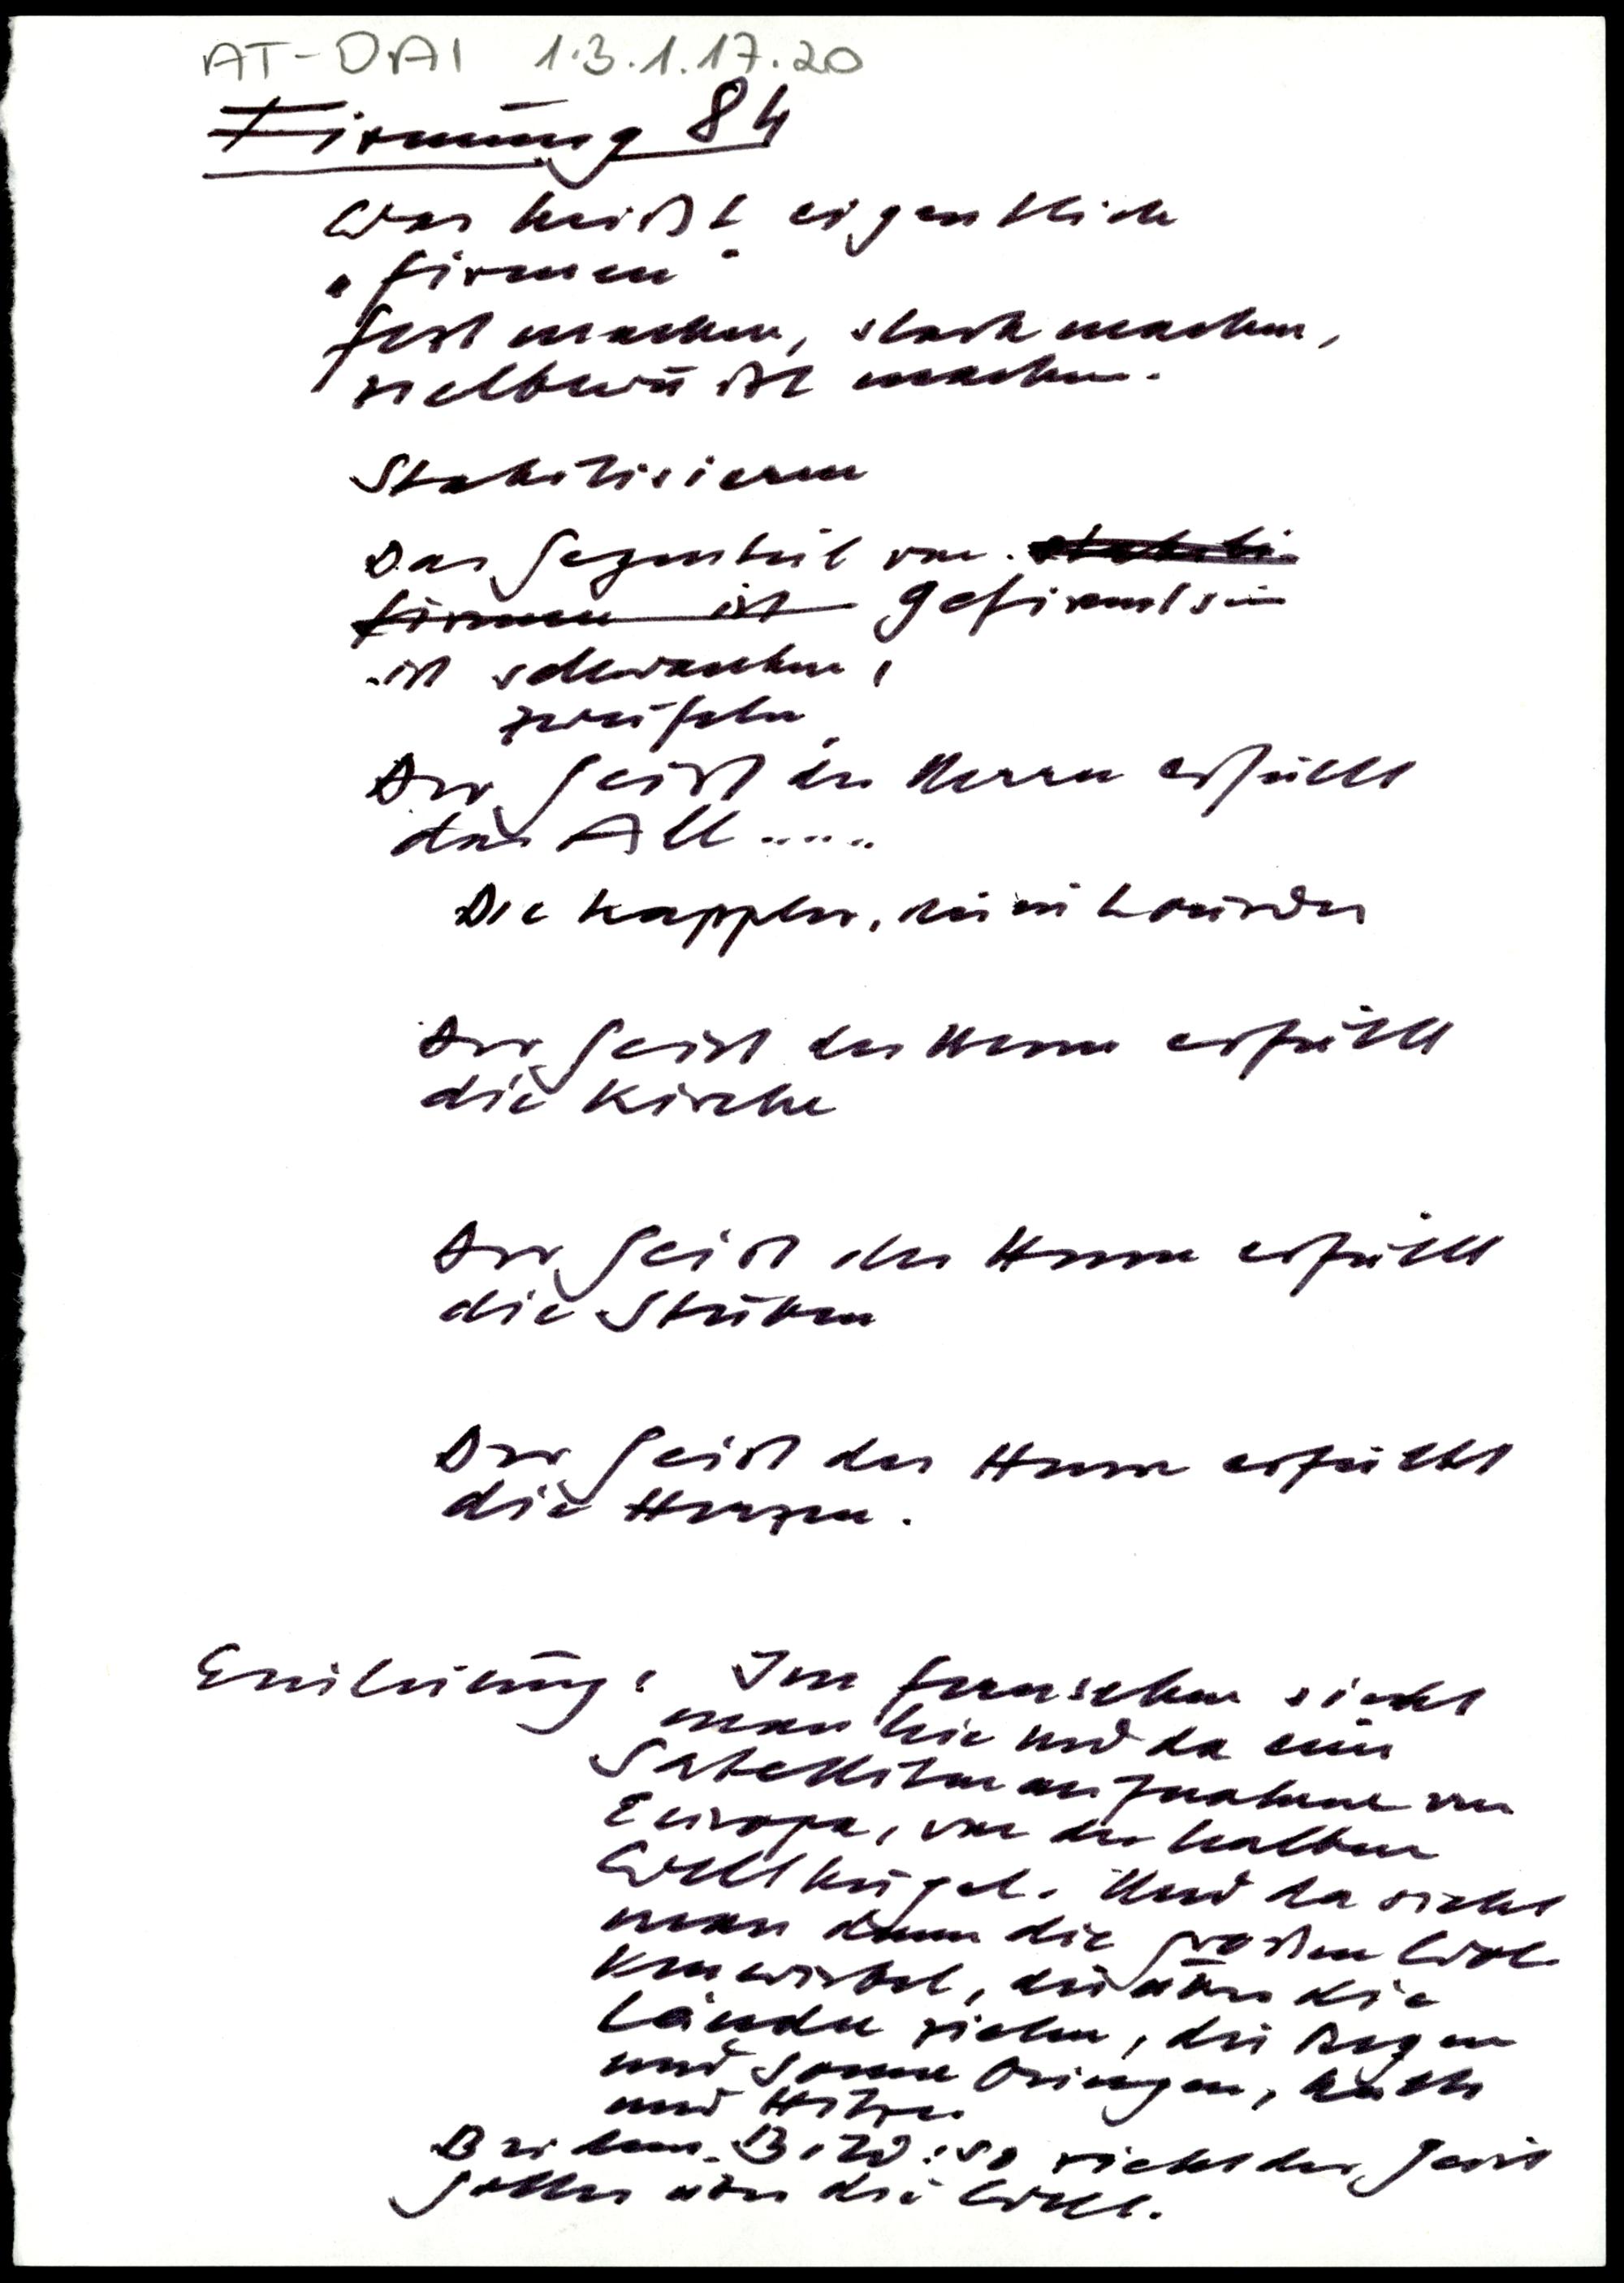 AT-DAI 1.3.1.17.20
Firmung 84
Was heißt eigentlich
"firmen"
fest machen, stark machen,
selbstbewußt machen.
Stabilisieren
Das Gegenteil von stabili
firmen ist gefirmt sein
ist schwanken,
zweifeln
Der Geist des Herrn erfüllt
das All .....
Die Kappler, die in Lourdes
Der Geist des Herrn erfüllt
die Kirche
Der Geist des Herrn erfüllt
die Stuben
Der Geist des Herrn erfüllt
die Herzen.
Einleitung: Im Fernsehen sieht
man hie und da eine
Satellitenaufnahme von
Europa, von der halben
Weltkugel. Und da sieht
man dann die großen Wol-
kenwirbel, die über die
Länder ziehen, die Regen
und Sonne bringen, Kälte
und Hitze.
Bild: so zieht der Geist
Gottes über die Welt.